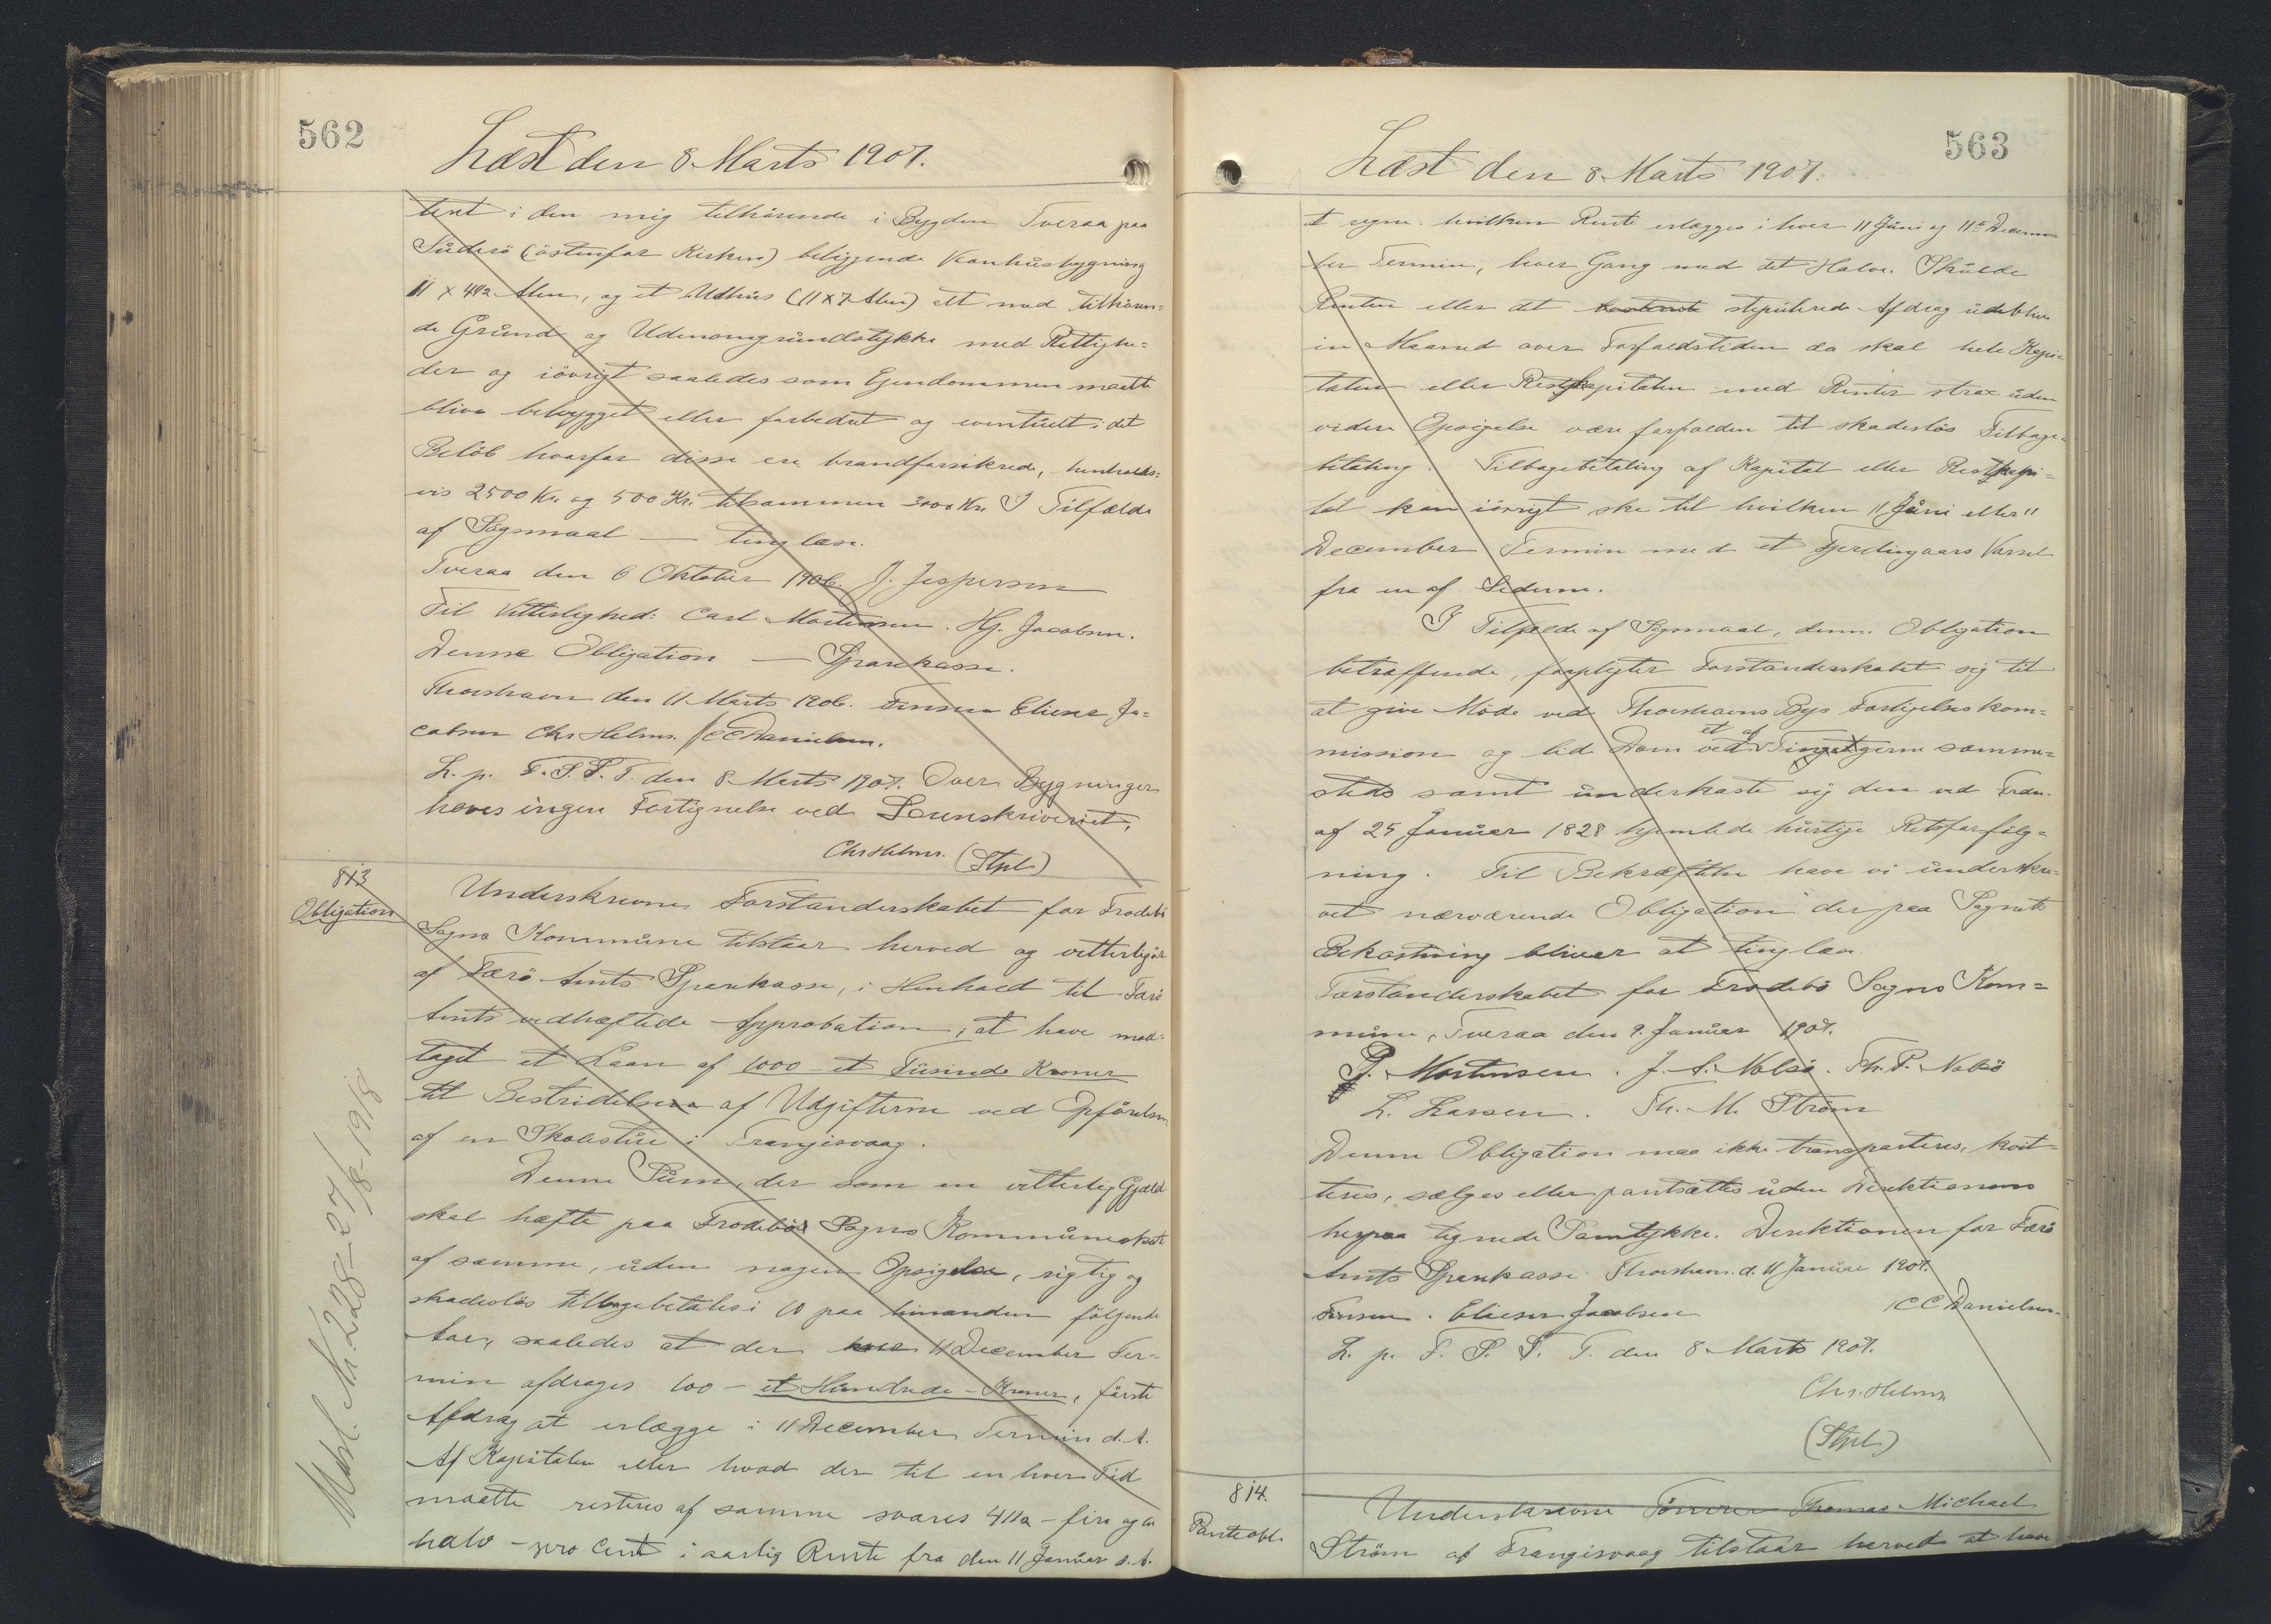 562
Læst den 8 Marts 1907.
teret i den mig tilhörende i Bygden Tveraa paa
Süderö (östenfor Kirken) beliggende Vaanhüsbygning
11 x 4 1/2 Alen, og et Udhüs (11 x 7 Alen) alt med tilhören=
de Gründ og Udenomsgründstykke med Rettighe=
der og iövrigt saaledes som Ejendommen maatte
blive bebygget eller forbedret og eventüelt i det
Belöb hvorfor disse ere brandforsikrede, henholds=
vis 2500 Kr. og 500 Kr. tilsammen 3000 Kr. I Tilfælde
af Sögsmaal — tinglæse.
Tveraa den 6 Oktober 1906. J. Jespersen
Til Vitterlighed: Carl Mortensen. Hj. Jacobsen.
Denne Obligation — Sparekasse.
Thorshavn den 11 Marts 1906. Finsen Elieser Ja=
cobsen Chr Helms. /CC Danielsen.
L. p. F. S. S. T. den 8 Marts 1907. Over Bygninger
haves ingen Fortegnelse ved Sorenskriveriet.
Chr Helms. (Stpl.)
813
Obligation
Underskrevne Forstanderskabet for Frodebö
Sogns Kommüne tilstaar herved og vitterligjör
af Færö Amts Sparekasse, i Henhold til Færö
Amts vedhæftede Approbation, at have mod=
taget et Laan af 1000 - et Tüsinde Kroner
til Bestridelsen af Udgifterne ved Opförelsen
af en Skolestüe i Trangisvaag.
Denne Süm, der som en vitterlig Gjæld
skal hæfte paa Frodebös Sogns Kommüneskat
af samme, üden nogen Opsigelse, rigtig og
skadeslös tilbagebetales i 10 paa hinanden fölgende
Aar, saaledes at der hver 11 December Ter=
min afdrages 100 - et Hündrede - Kroner, förste
Afdrag at erlægge i 11 December Termin d. A.
Af Kapitalen eller hvad der til enhver Tid
maatte resteres af samme svares 4 1/2 - fire og en
halv - pro Cent i aarlig Rente fra den 11 Janüar d. A.
Matl. Nr. 228 - 27/8-1918
563
Læst den 8 Marts 1907.
t regne. hvilken Rente erlægges i hver 11 Jüni og 11te Decem
ber Termin, hver Gang med det Halve. Skülde
Renten eller det bestemte stipülerede Afdrag üdeblive
en Maaned over Forfaldstiden da skal hele Kapi=
talen eller Restkapitalen med Renter strax üden
videre Opsigelse være forfalden til skadeslös Tilbage=
betaling. Tilbagebetaling af Kapital eller Restkapi=
tal kan iövrigt ske til hvilken 11 Jüni eller 11
December Termin med et Fjerdingaars Varsel
fra en af Siderne.
I Tilfælde af Sögsmaal, denne Obligation
betræffende, forpligter Forstanderskabet sig til
at give Möde ved Thorshavns Bys Forligelseskom=
mission og lide Dom ved et af Tingstgerne samme=
steds samt ünderkaste sig den ved Frdn.
af 25 Janüar 1828 hjemlede hürtige Retsforfölg=
ning. Til Bekræftelse have vi ünderskre=
vet nærværende Obligation der paa Sognets
Bekostning bliver at tinglæse.
Forstanderskabet for Frodebö Sogns Kom=
müne, Tveraa den 9. Janüar 1907.
P. Mortensen. J. A. Nolsö. Th. P. Nolsö
L. Larsen. Th. M. Ström
Denne Obligation maa ikke transporteres, kvit=
teres, sælges eller pantsættes üden Direktionens
herpaa tegnede Samtykke. Direktionen for Færö
Amts Sparekasse Thorshavn. d. 11 Janüar 1907.
Finsen. Elieser Jacobsen /CC Danielsen.
L. p. F. S. S. T. den 8 Marts 1907.
Chr. Helms
(Stpl.)
814.
Panteobl.
Underskrevne Tömrer Thomas Michael
Ström af Trangisvaag tilstaar herved at have